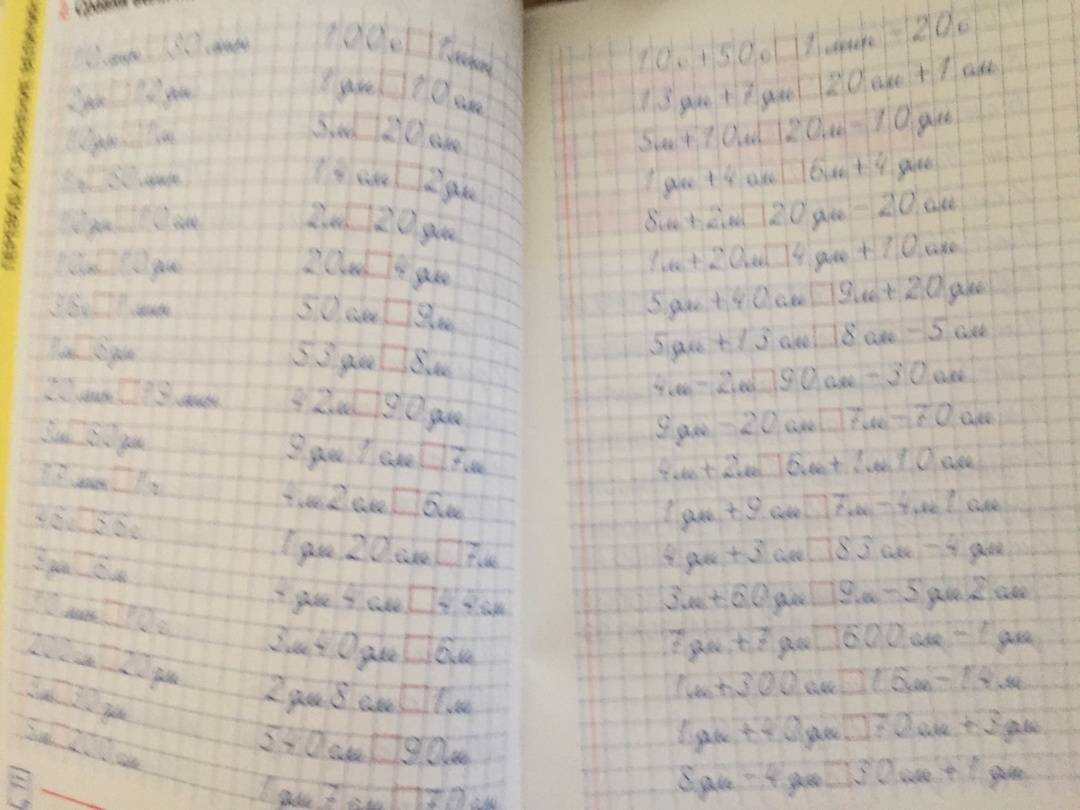 10 мин □ 30 мин
2 дм □ 12 дм
10 дм □ 1 м
□ 60 мин
10 дм □ 10 см
10 м □ 10 дм
36 с □ 1 мин
1 м □ 6 дм
20 мин □ 19 мин
□ 60 дм
17 мин □ 1 ч
46 с □ 56 с
3 дм □ 6 м
10 мин □ 10 с
200 см □ 20 дм
3 м □ 30 дм
5 м □ 200 см
100 с □ 1 мин
1 дм □ 10 см
5 м □ 20 см
14 см □ 2 дм
2 м □ 20 дм
20 м □ 4 дм
50 см □ 9 м
53 дм □ 8 м
42 м □ 90 дм
9 дм 1 см □ 7 м
4 м 2 см □ 6 м
1 дм 20 см □ 7 м
4 дм 4 см □ 44 см
3 м 40 дм □ 6 м
2 дм 8 см □ 1 м
540 см □ 90 м
1 дм 7 см □ 70 см
10 с + 50 с □ 1 мин - 20 с
13 дм + 7 дм □ 20 см + 1 см
5 м + 10 м □ 20 м - 10 дм
1 дм + 4 см □ 6 м + 4 дм
8 м + 2 м □ 20 дм - 20 см
1 м + 20 м □ 4 дм + 10 см
5 дм + 40 см □ 9 м + 20 дм
5 дм + 13 см □ 8 см - 5 см
4 м - 2 м □ 90 см - 30 см
9 дм - 20 см □ 7 м - 70 см
4 м + 2 м □ 6 м + 1 м 10 см
1 дм + 9 см □ 7 м - 4 м 1 см
4 дм + 3 см □ 83 см - 4 дм
3 м + 60 дм □ 9 м - 5 дм 2 см
7 дм + 7 дм □ 600 см - 1 дм
1 м + 300 см □ 16 м - 14 м
1 дм + 40 дм □ 70 см + 3 дм
8 дм - 4 дм □ 30 см + 1 дм